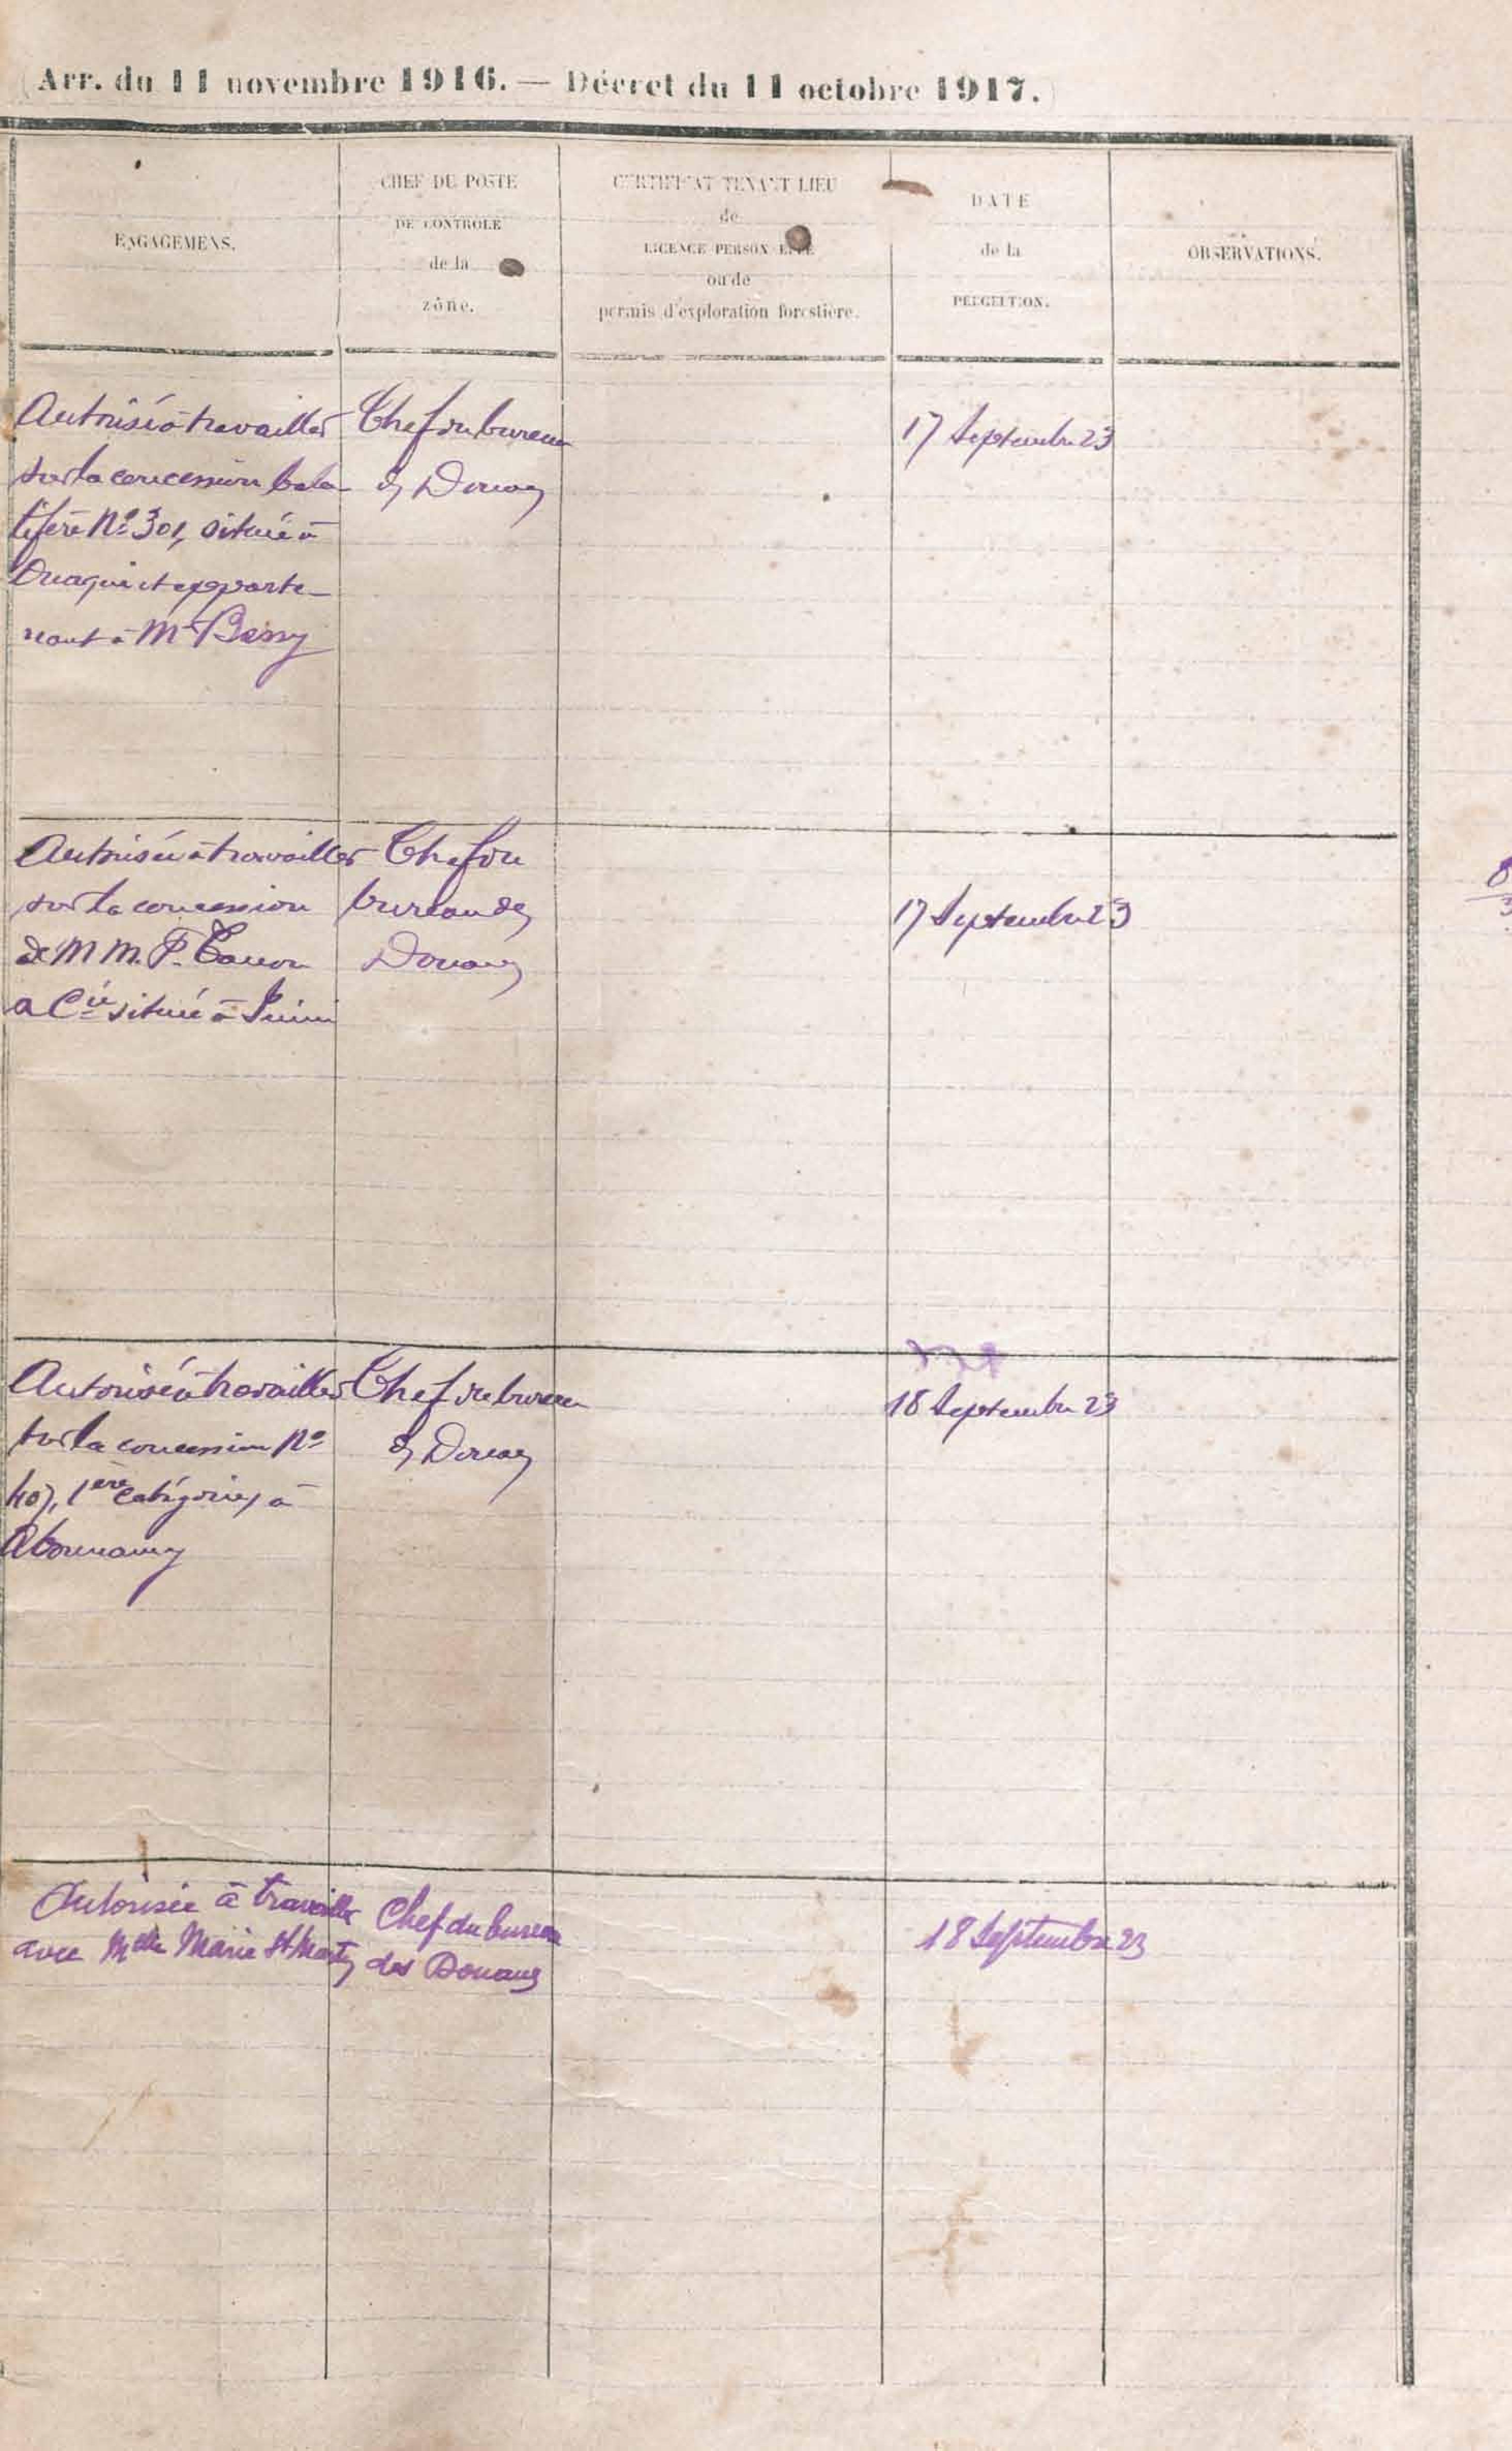 (Arr. du 11 novembre 1916. — Décret du 11 octobre 1917.)
ENGAGEMENS.
CHEF DU POSTE
DE CONTROLE
de la
zône.
CERTIFICAT TENANT LIEU
de
LICENCE PERSONNELLE
ou de
permis d'exploration forestière.
DATE
de la
PERCEPTION.
OBSERVATIONS.
Autorisé à travailler
sur la concession bala-
tifère No 301, située à
Ouaqui et apparte-
nant à Mr Bassy
Chef du bureau
des Douanes
17 Septembre 23
Autorisée à travailler
sur la concession
de MM. P.
& Cie située à
Chef du
bureau des
Douanes
17 Septembre 23
Autorisé à travailler
sur la concession No
407, 1ère catégorie, à
Abounamy
Chef du bureau
des Douanes
18 Septembre 23
Autorisée à travailler
avec Melle Marie St Marty
Chef du bureau
des Douanes
18 Septembre 23